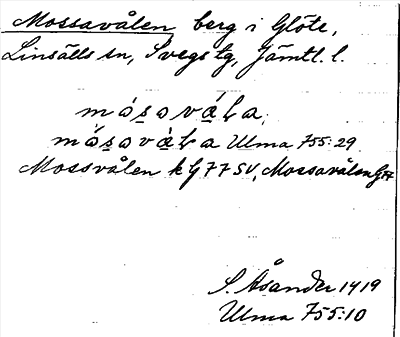 Mossavålen berg i Glöte,
Linsälls sn, Svegs tg, Jämtl. l.
Ulma 755:29
Mossvålen k G 77 SV, Mossavålen G77
S. Åsander 1919
Ulma 755:10